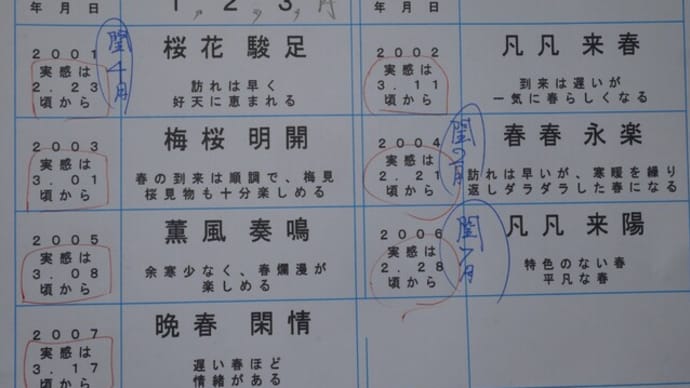 年 月 日
1, 2, 3, 月
年 月 日
2001
実感は
2.23
頃から
閏4月
桜花駿足
訪れは早く
好天に恵まれる
2002
実感は
3.11
頃から
凡凡来春
到来は遅いが
一気に春らしくなる
2003
実感は
3.01
頃から
梅桜明開
春の到来は順調で、梅見
桜見物も十分楽しめる
2004
実感は
2.21
頃から
閏2月
春春永楽
訪れは早いが、寒暖を繰り
返しダラダラした春になる
2005
実感は
3.08
頃から
薫風奏鳴
余寒少なく、春爛漫が
楽しめる
2006
実感は
2.28
頃から
閏7月
凡凡来陽
特色のない春
平凡な春
2007
実感は
3.17
頃から
晩春閑情
遅い春ほど
情緒がある